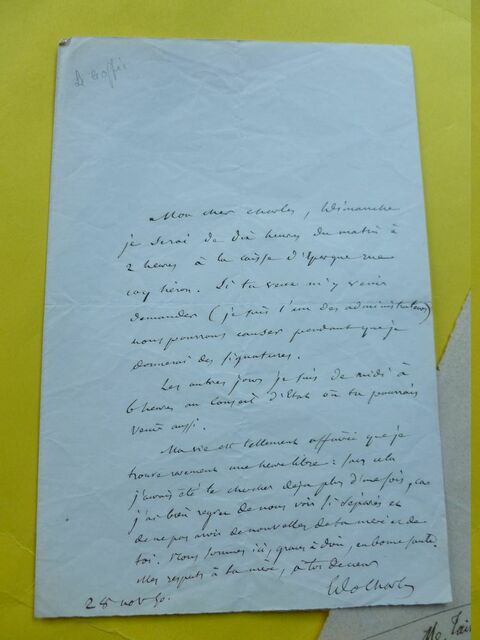 Mon cher Charles, le dimanche
je serai de dix heures du matin à
2 heures à la caisse d'épargne rue
coq héron. Si tu veux m'y venir
demander (je suis l'un des administrateurs)
nous pourrons causer pendant que je
donnerai des signatures.
Les autres jours je suis de midi à
6 heures au Conseil d'Etat où tu pourrais
venir aussi.
Ma vie est tellement affairée que je
trouve rarement une heure libre : sans cela
j'aurais été te chercher déjà plus d'une fois, car
j'ai bien regret de nous voir si séparés et
de ne pas avoir de nouvelles de ta mère et de
toi. Nous sommes ici, grâces à Dieu, en bonne santé.
Mes respects à ta mère, à toi de cœur
28 nov 50.